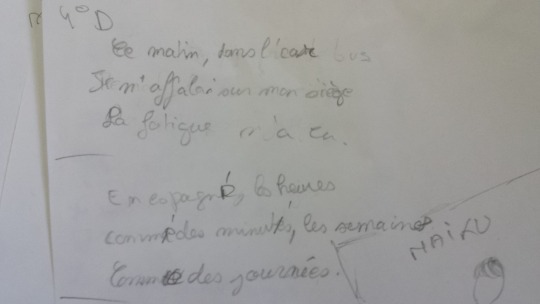 4°D
Ce matin, dans l'car bus
Je m'affalai sur mon siège
La fatigue m'a eu.
En espagne, les heures
comme des minutes, les semaines
Comme des journées.
HAIKU